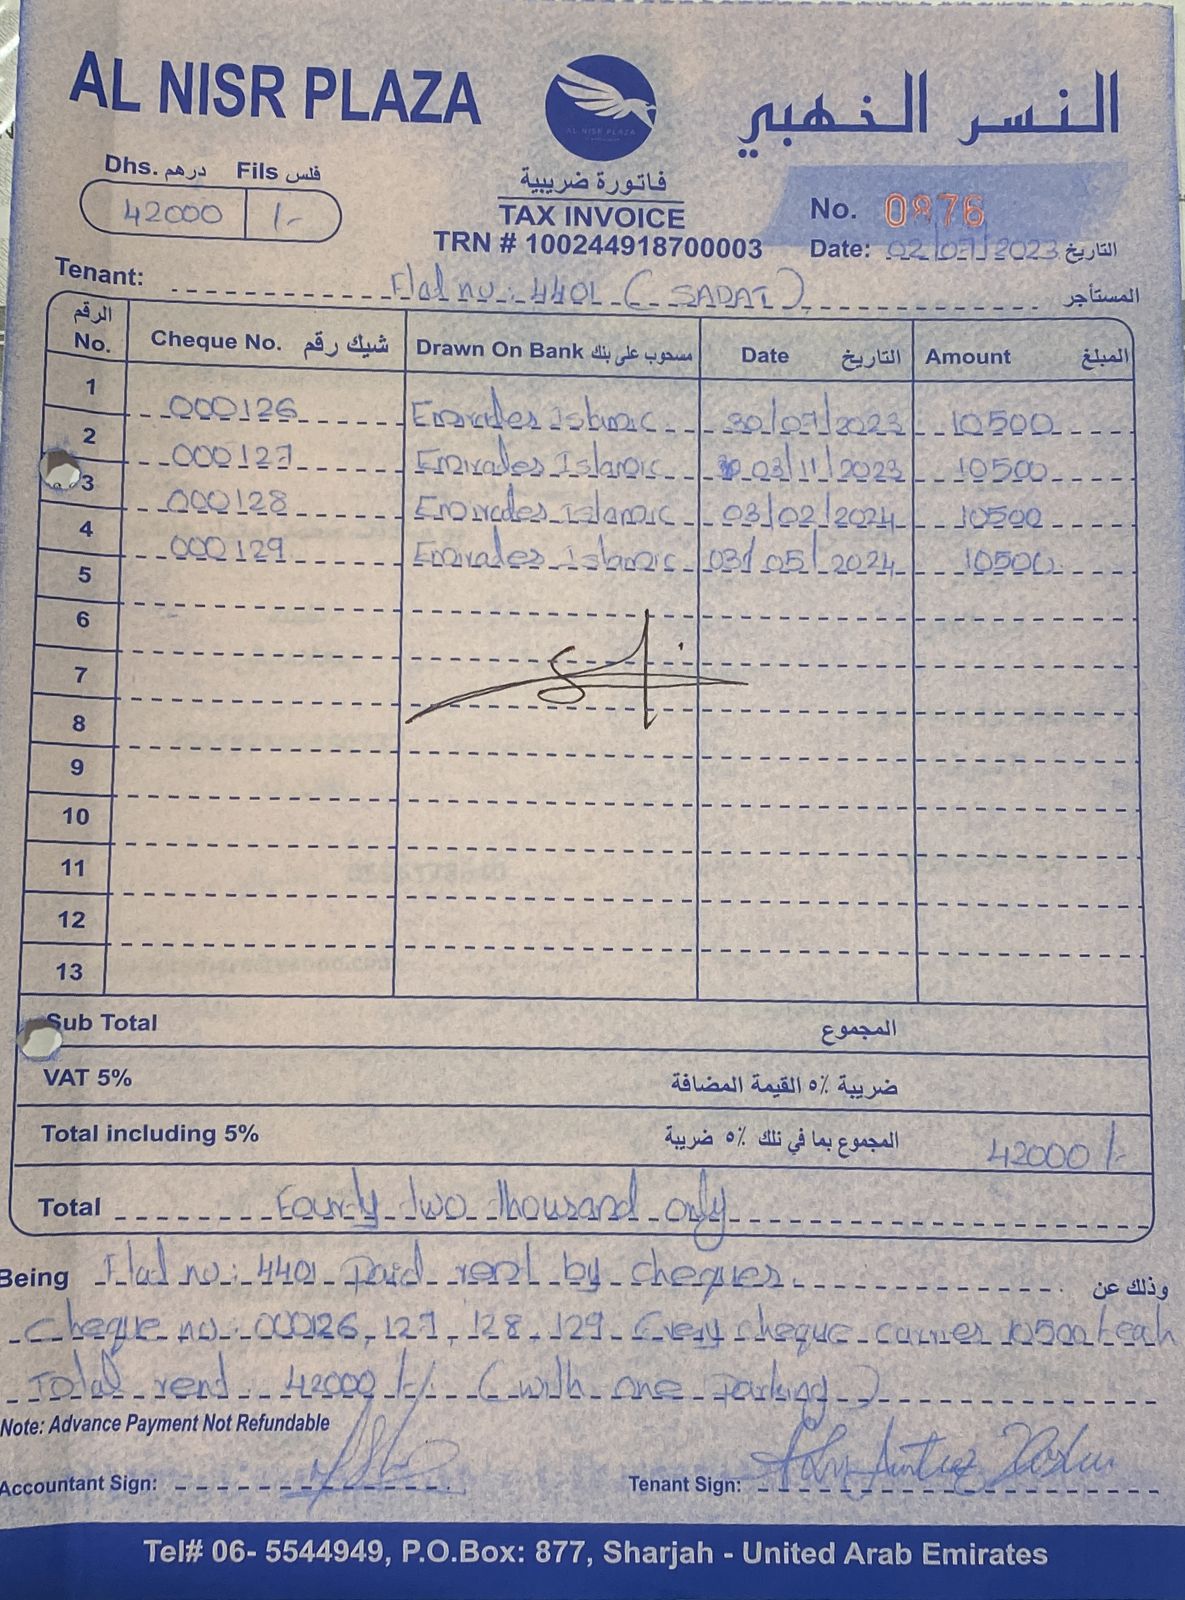 AL NISR PLAZA
AL NISR PLAZA
النسر الذهبي
Dhs. درهم Fils فلس
42000 /-
فاتورة ضريبية
TAX INVOICE
TRN # 100244918700003
No. 0876
Date: 02/07/2023 التاريخ
Tenant: Flat no: 4401 (SADAT) المستأجر
الرقم No. Cheque No. شيك رقم Drawn On Bank مسحوب على بنك Date التاريخ Amount المبلغ
1 000126 Emirades Islamic 30/07/2023 10500
2 000127 Emirades Islamic 03/11/2023 10500
3 000128 Emirades Islamic 03/02/2024 10500
4 000129 Emirades Islamic 03/05/2024 10500
5
6
7
8
9
10
11
12
13
Sub Total المجموع
VAT 5% ضريبة ٥٪ القيمة المضافة
Total including 5% المجموع بما في ذلك ٥٪ ضريبة 42000 /-
Total Fourty two thousand only
Being Flat no: 4401 Paid rent by cheques. وذلك عن
Cheque no: 000126, 127, 128, 129 Every cheque carries 10500 eah
Total rend: 42000 /- (with one parking)
Note: Advance Payment Not Refundable
Accountant Sign: Tenant Sign:
Tel# 06- 5544949, P.O.Box: 877, Sharjah - United Arab Emirates